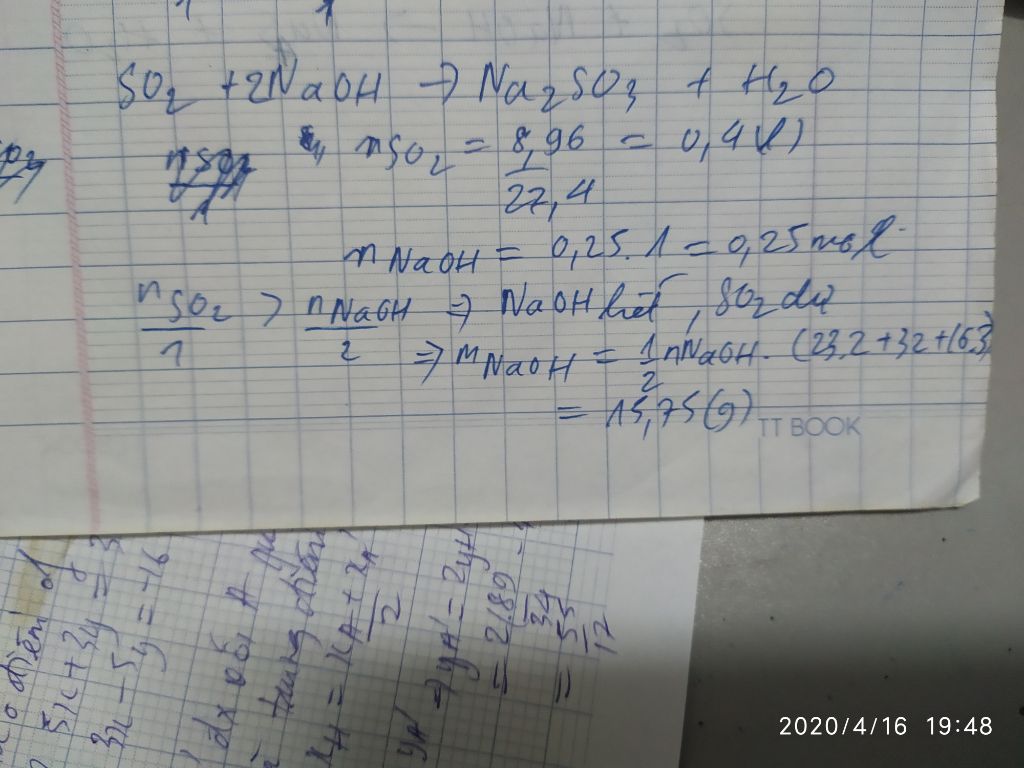 SO2 + 2NaOH → Na2SO3 + H2O
nSO2 = 8,96/22,4 = 0,4(l)
nNaOH = 0,25.1 = 0,25 mol
nSO2/1 > nNaOH/2 ⇒ NaOH hết, SO2 dư
⇒ mNaOH = 1/2 nNaOH. (23.2+32+16.3)
= 15,75(g)
TT BOOK
5x + 3y = 3
3x - 5y = -16
xH = xA + xA'/2
⇒ yA' = 2yH
= 2.89/34
= 55/17
2020/4/16 19:48